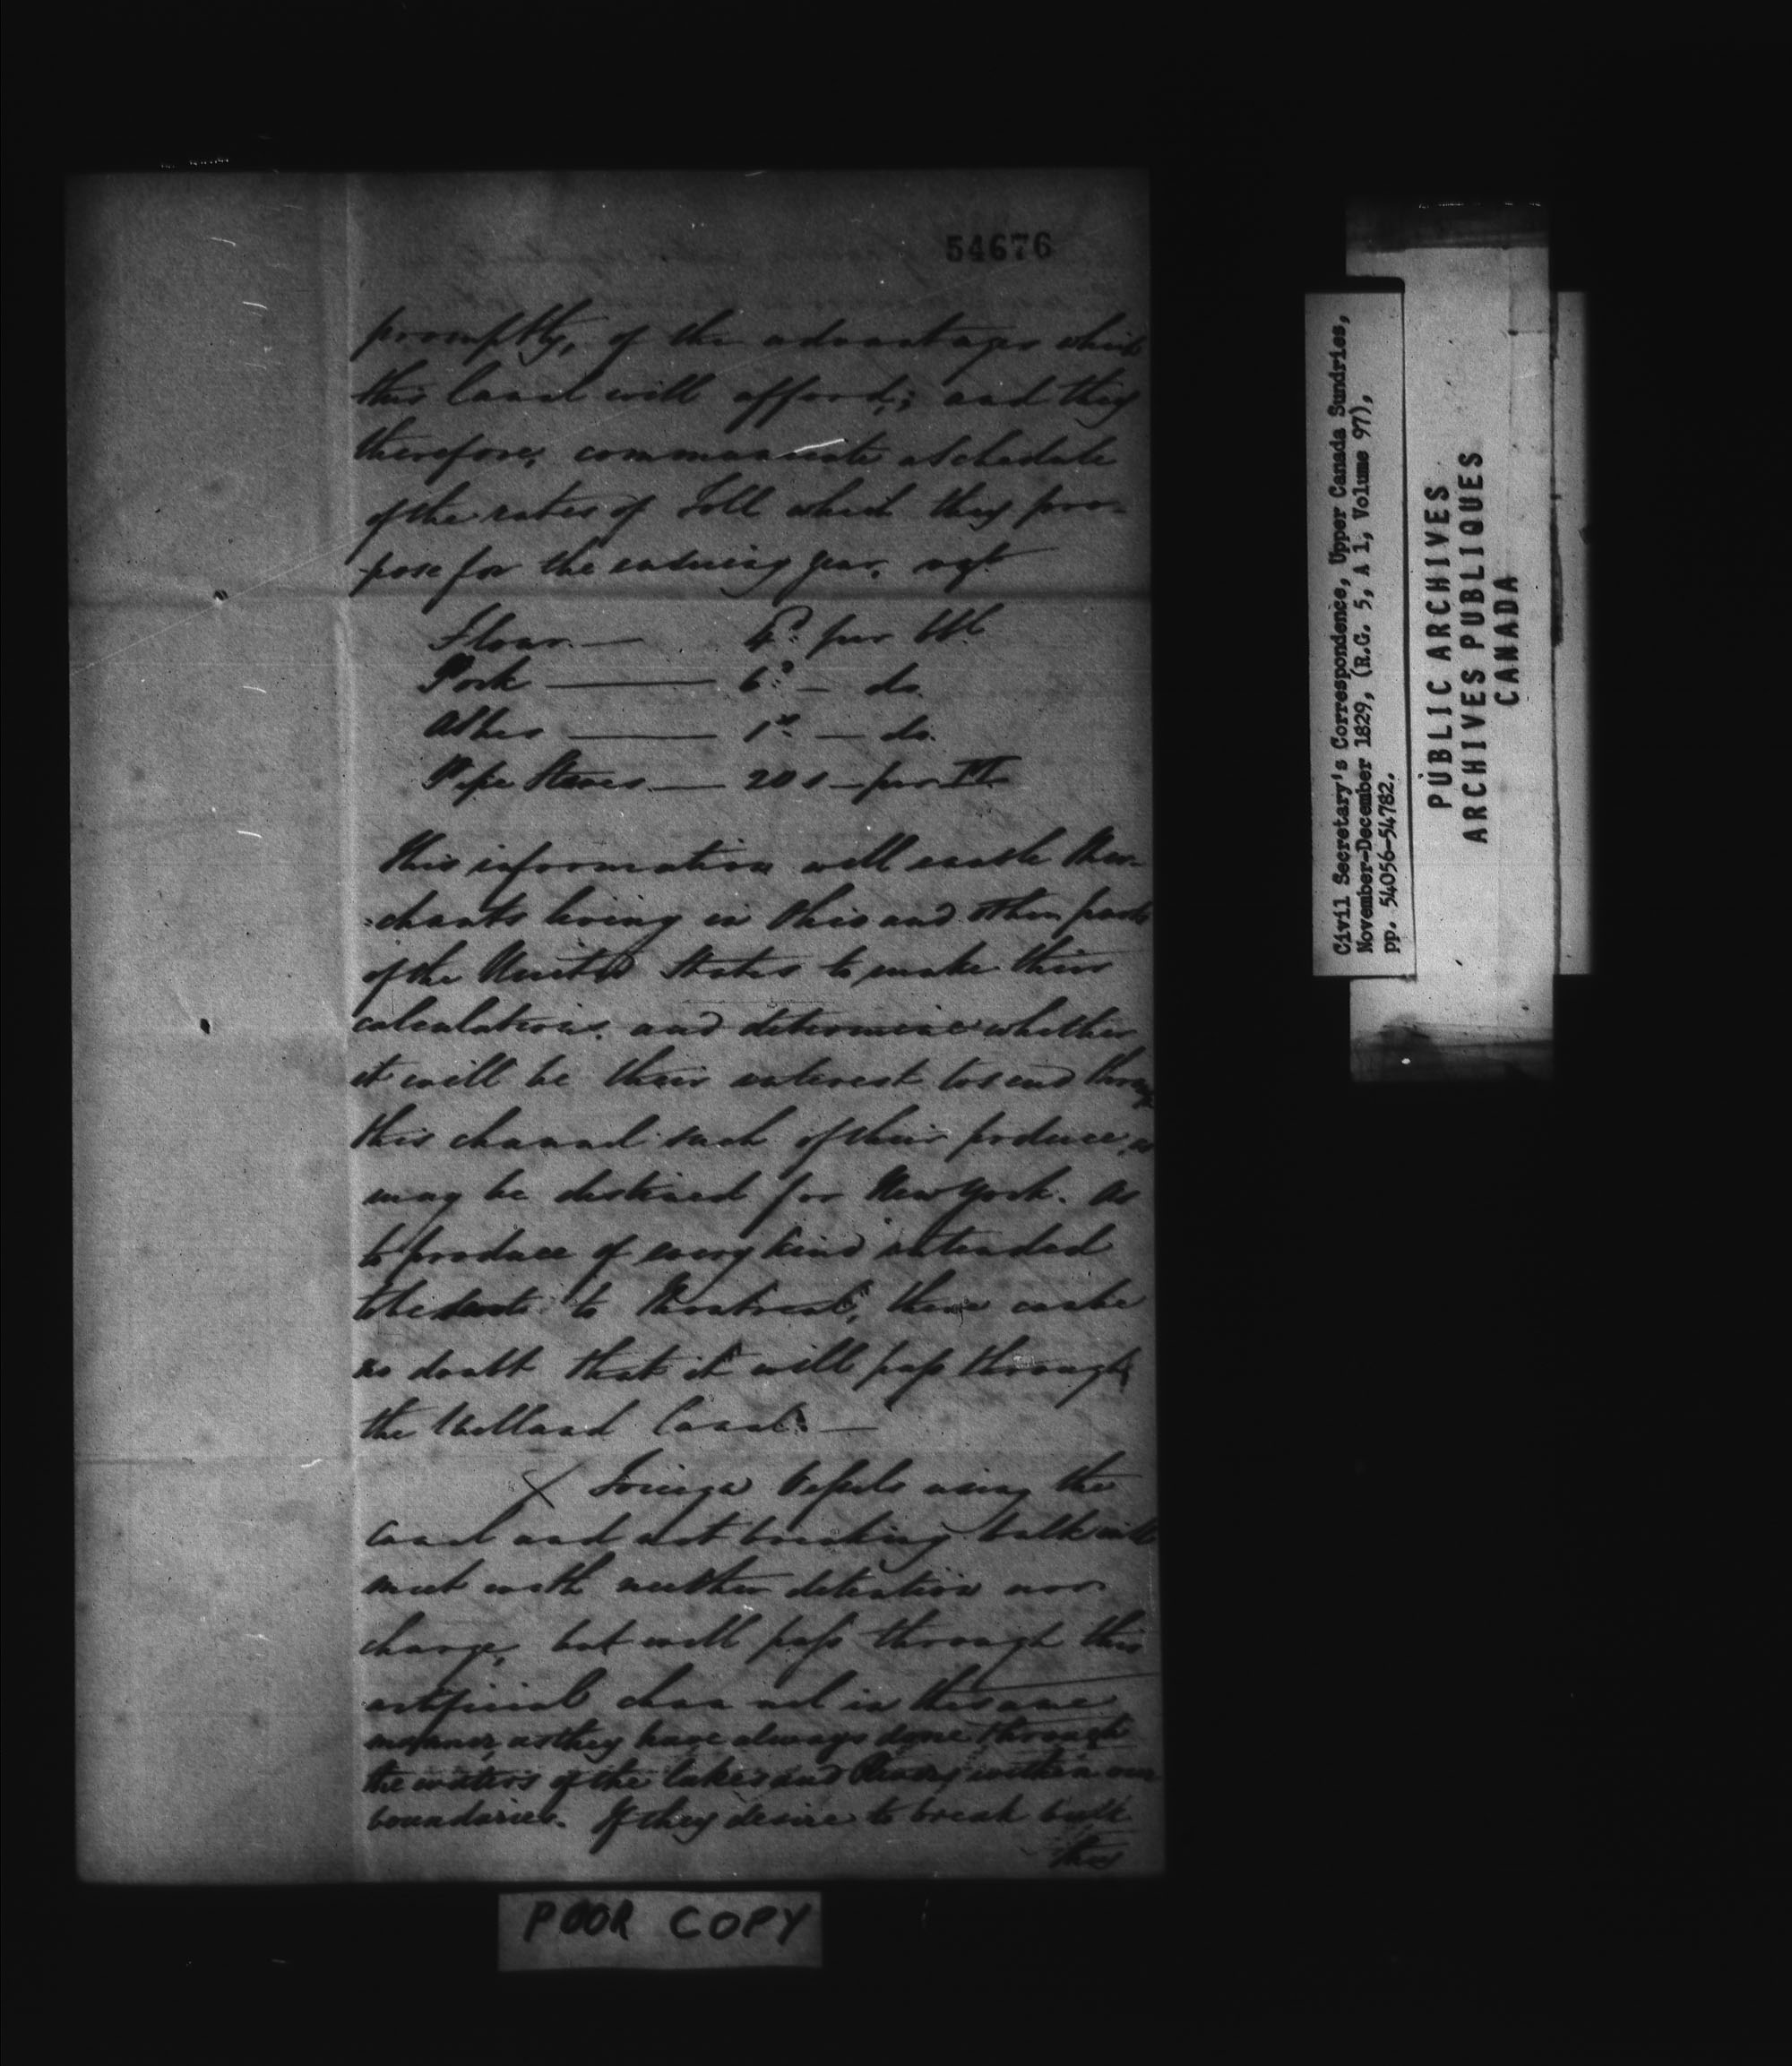 54676
promptly, of the advantages which
this Canal will afford; and they
therefore, communicate a schedule
of the rates of Toll which they pro-
pose for the ensuing year. viz.t
Flour — 4.d per bbl
Pork — 6.d — do.
Ashes — 1.s — do.
Pipe Staves — 20 s — per M.
This information will enable Mer-
=chants living in this and other parts
of the United States to make their
calculations, and determine whether
it will be their interest to send through
this channel such of their produce, as
may be destined for New York. As
to produce of every kind intended
to be sent to Montreal, there can be
no doubt that it will pass through
the Welland Canal. —
X Foreign Vessels using the
Canal and not breaking bulk will
meet with neither detention nor
charge, but will pass through this
artificial channel in the same
manner, as they have always done through
the waters of the lakes and Rivers within our
boundaries. If they desire to break bulk
they
POOR COPY
Civil Secretary's Correspondence, Upper Canada Sundries,
November-December 1829, (R.G. 5, A 1, Volume 97),
pp. 54056-54782.
PUBLIC ARCHIVES
ARCHIVES PUBLIQUES
CANADA